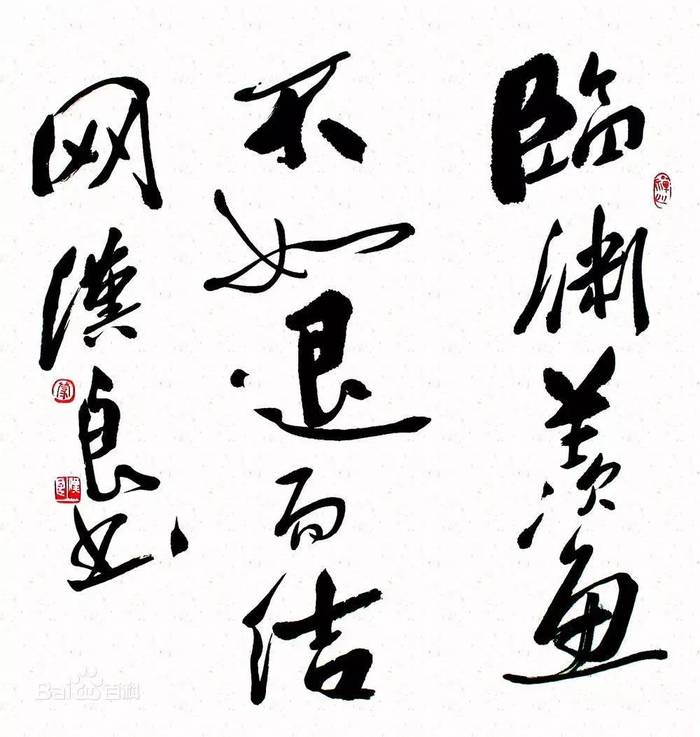 临渊羡鱼
不如退而结
网汉良书
Bai百科